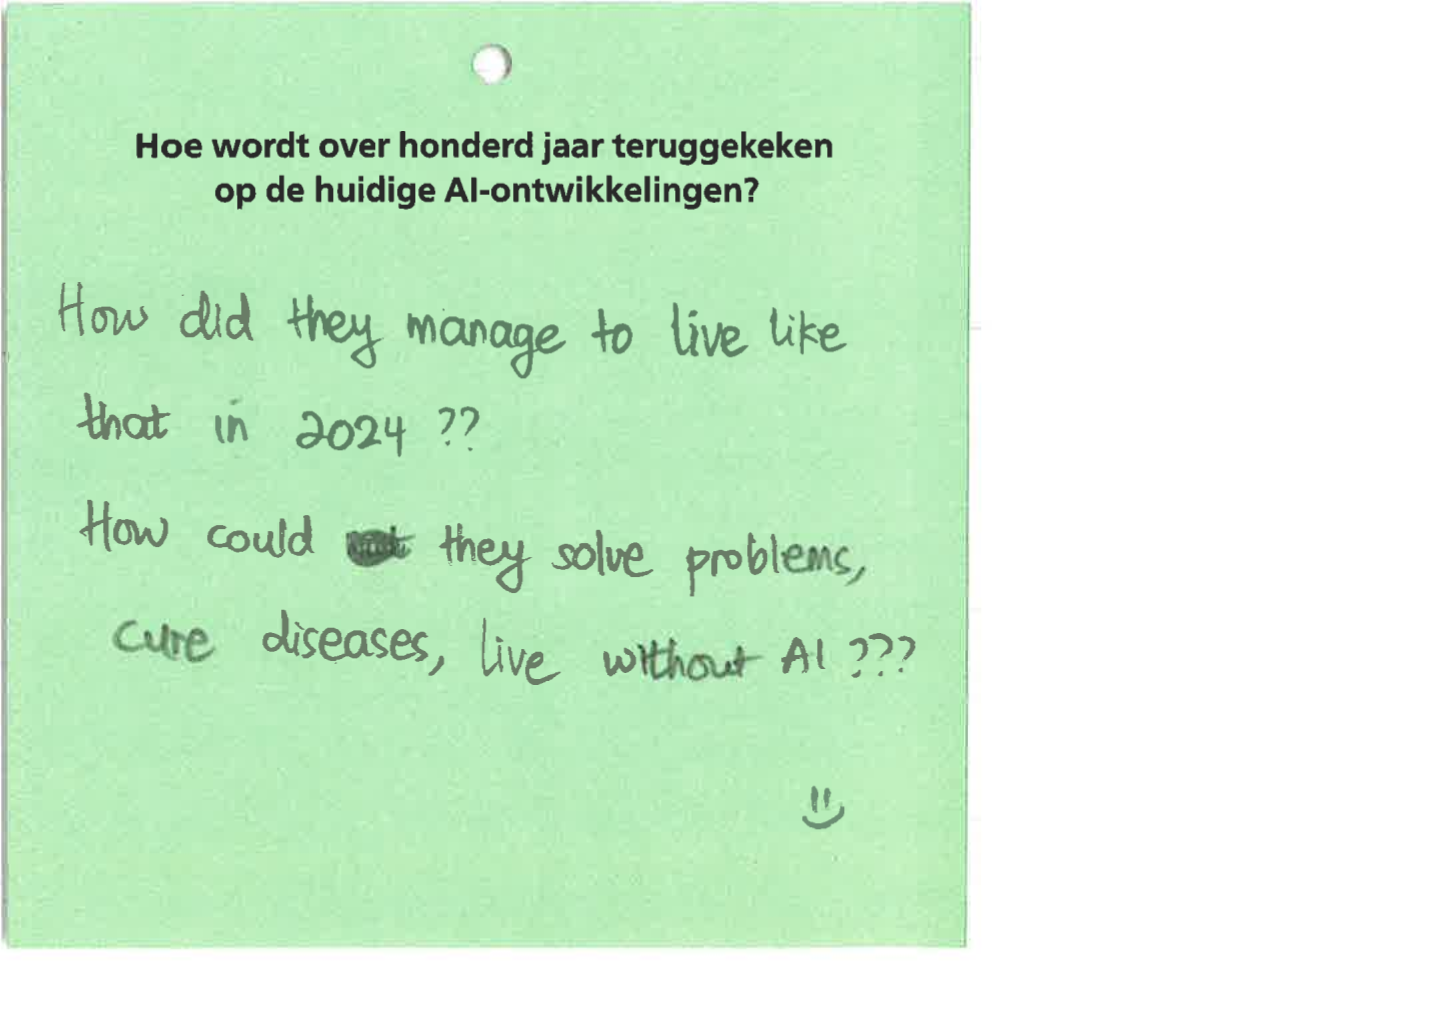 Hoe wordt over honderd jaar teruggekeken
op de huidige AI-ontwikkelingen?
How did they manage to live like
that in 2024 ??
How could they solve problems,
cure diseases, live without AI ???